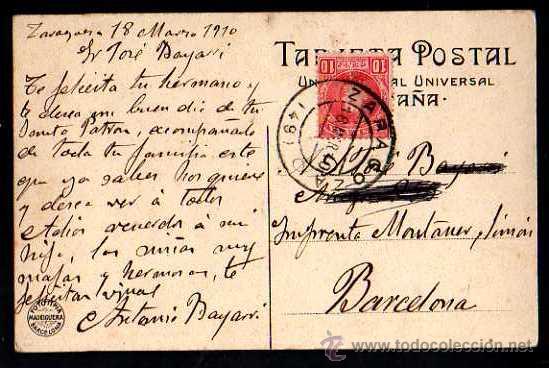 Zaragoza 18 Marzo 1910
Sr José Bayarri
Te felicita tu hermano y
te desea un buen día de tu
Santo Patron, acompañado
de toda tu familia, este
que ya sabes los quiere
y desea ver á todos
Adios recuerdos á mi
hija, las niñas muy
majas y hermosas, te
felicitan igual
Antonio Bayarri
TARJETA POSTAL
UN AL UNIVERSAL
ESPAÑA
10 10
ZARAGOZA (49)
Bayarri
Imprenta Montaner y Simón
Barcelona
FOTOTIPIA
MADRIGUERA
BARCELONA
www.todocoleccion.net